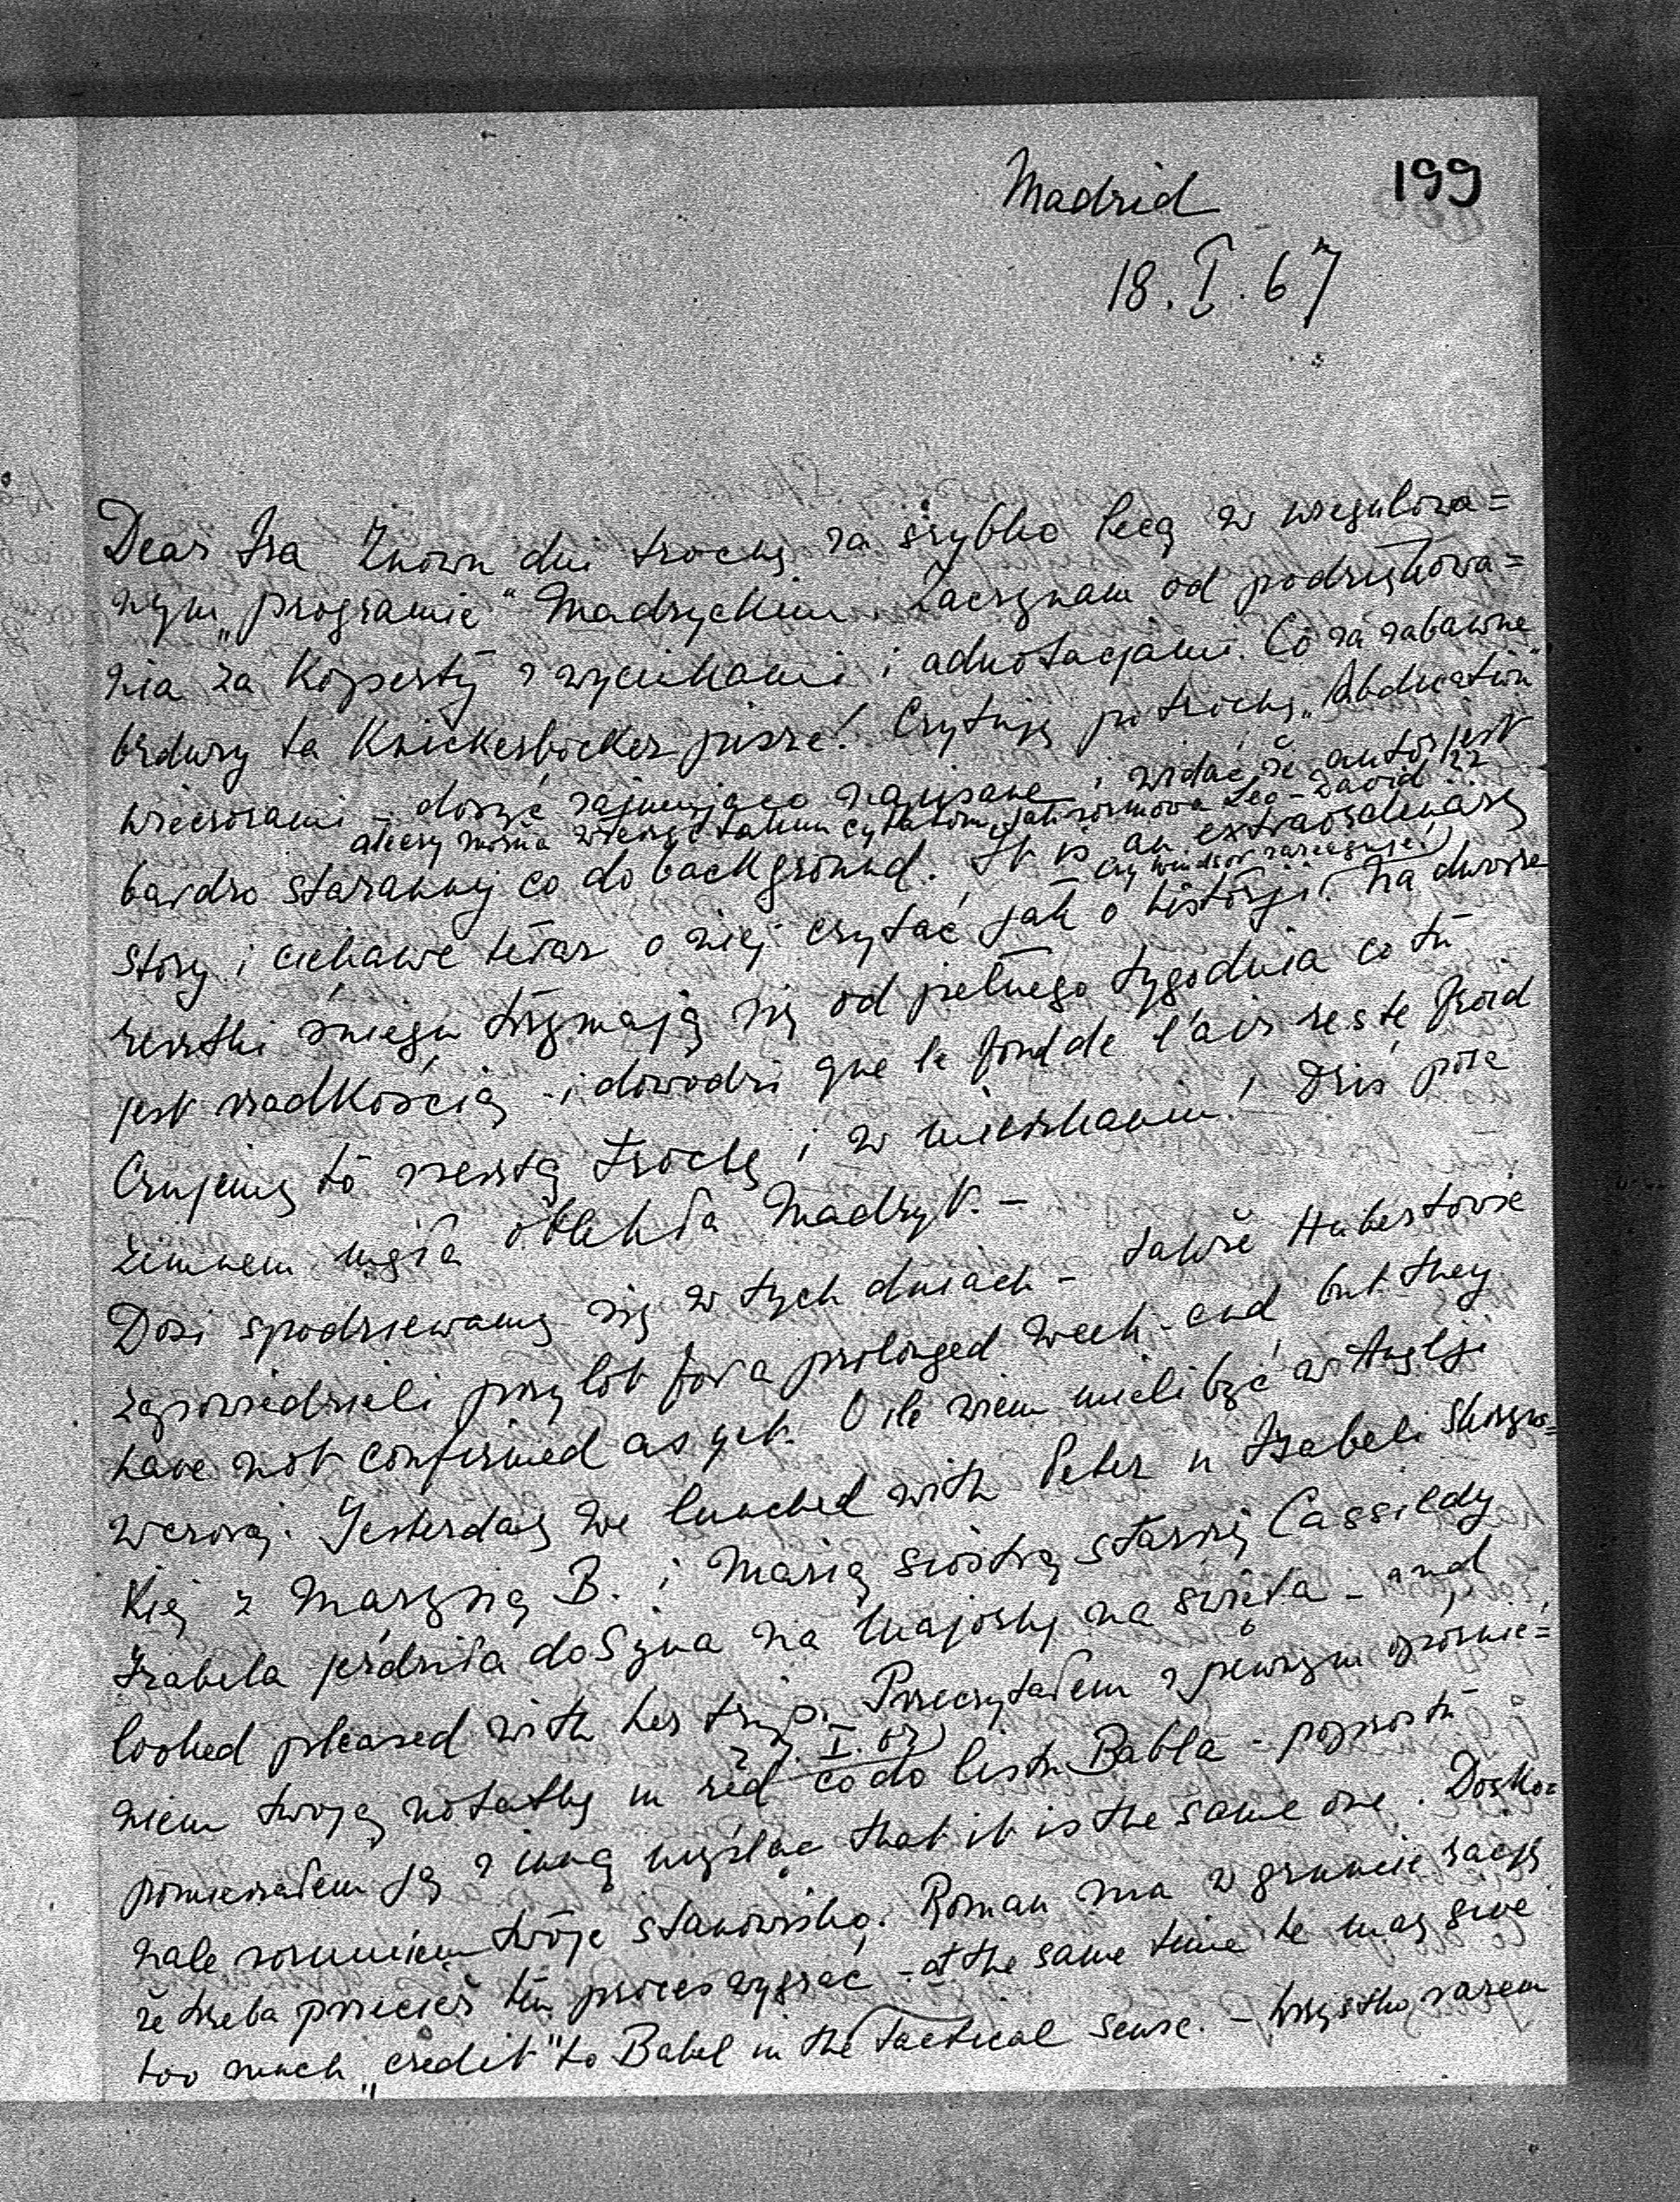 199
Madrid
18.I.67
Dear Ira Znowu dni trochę za szybko lecą w uregulowa=
nym „programie" Madryckim. Zaczynam od podziękowa=
nia za Kopertę z wycinkami i adnotacjami. Co za zabawne
brdury ta Knickerbocker pisze! Czytuję po trochę „Abdication"
wieczorami – dosyć zajmująco napisane i widać, że autor jest
ale czy można wierzyć takim cytatom, jak rozmowa Leg – David ?!
bardzo staranny co do background. It is an extraordinary
– czy Windsor zareaguje?
story i ciekawe teraz o niej czytać jak o historji! Na dworze
resztki śniegu trzymają się od pełnego tygodnia co tu
jest rzadkością – i dowodzi que le fond de l'air reste froid
Czujemy to zresztą trochę i w mieszkaniu! Dziś poza
zimnem mgła oblekła Madryt. –
Dosi spodziewamy się w tych dniach – także Hubertowie
zapowiedzieli przylot for a prolonged week-end, but they
have not confirmed as yet. O ile wiem mieli być w Anglji
wczoraj. Yesterday we lunched with Peter u Izabeli Skorzew=
Kiej z Marysią B. i Marią siostrą starszą Cassildy
Izabela jeździła do Syna na Majorkę na święta – and
looked pleased with her trip. Przeczytałem z pewnym opóźnie=
niem twoją notatkę in red co do listu Babla – poprostu
27.I.67)
pomieszałem ją z inną myśląc that it is the same one. Dosko=
nale rozumiem twoje stanowisko. Roman ma w gruncie rację
że trzeba przecież ten proces wygrać – at the same time he may give
too much „credit" to Babel in the tactical sense. – Wszystko razem